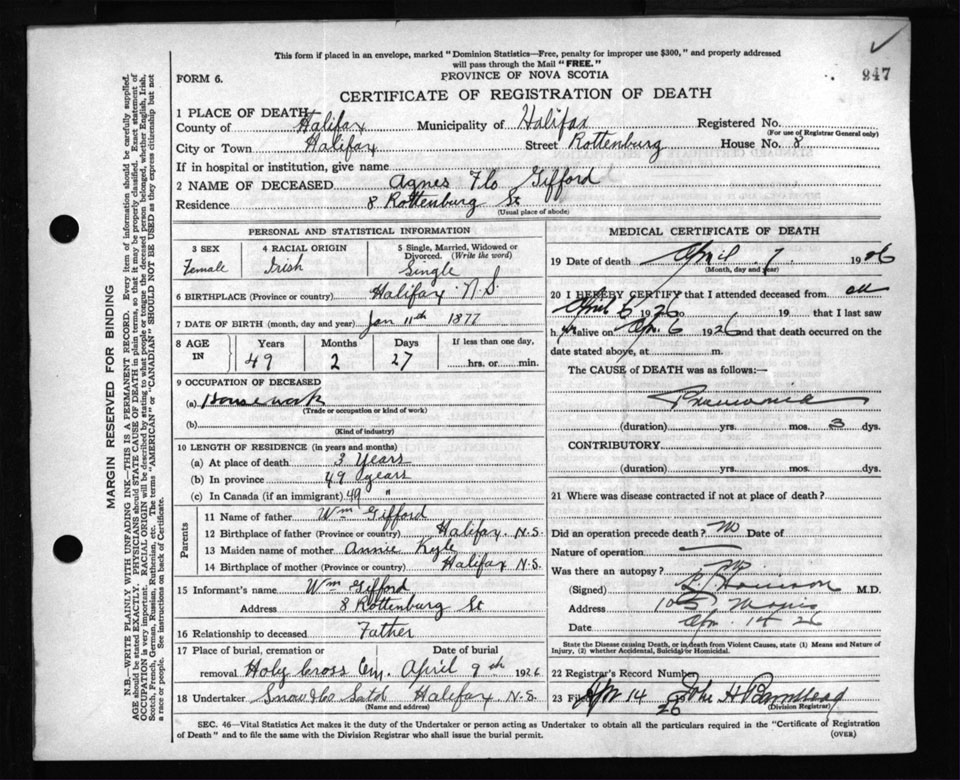 This form if placed in an envelope, marked "Dominion Statistics—Free, penalty for improper use $300," and properly addressed
will pass through the Mail "FREE."
947
FORM 6.
PROVINCE OF NOVA SCOTIA
CERTIFICATE OF REGISTRATION OF DEATH
1 PLACE OF DEATH
County of Halifax Municipality of Halifax Registered No.
(For use of Registrar General only)
City or Town Halifax Street Rottenburg House No. 8
If in hospital or institution, give name
2 NAME OF DECEASED Agnes Flo Gifford
Residence 8 Rottenburg St
(Usual place of abode)
PERSONAL AND STATISTICAL INFORMATION
3 SEX 4 RACIAL ORIGIN 5 Single, Married, Widowed or
Divorced. (Write the word)
Female Irish Single
6 BIRTHPLACE (Province or country) Halifax N.S.
7 DATE OF BIRTH (month, day and year) Jan 11th 1877
8 AGE IN Years Months Days If less than one day,
49 2 27 hrs. or min.
9 OCCUPATION OF DECEASED
(a) Housework
(Trade or occupation or kind of work)
(b)
(Kind of industry)
10 LENGTH OF RESIDENCE (in years and months)
(a) At place of death 3 Years
(b) In province 49 years
(c) In Canada (if an immigrant) 49 "
Parents
11 Name of father Wm Gifford
12 Birthplace of father (Province or country) Halifax. N.S.
13 Maiden name of mother Annie
14 Birthplace of mother (Province or country) Halifax N.S.
15 Informant's name Wm Gifford
Address 8 Rottenburg St
16 Relationship to deceased Father
17 Place of burial, cremation or Date of burial
removal Holy Cross Cem. April 9th 1926
18 Undertaker Snow & Co Halifax N.S.
(Name and address)
MEDICAL CERTIFICATE OF DEATH
19 Date of death April 7 1926
(Month, day and year)
20 I HEREBY CERTIFY that I attended deceased from
April 5 1926 to 19 that I last saw
h er alive on Apr. 6 1926 and that death occurred on the
date stated above, at m.
The CAUSE of DEATH was as follows:—
Pneumonia
(duration) yrs. mos. 3 dys.
CONTRIBUTORY
(duration) yrs. mos. dys.
21 Where was disease contracted if not at place of death?
Did an operation precede death? No Date of
Nature of operation
Was there an autopsy? No
(Signed) M.D.
Address Morris
Date Apr. 14 26
State the Disease causing Death, or in death from Violent Causes, state (1) Means and Nature of
Injury, (2) whether Accidental, Suicidal or Homicidal.
22 Registrar's Record Number
23 Filed Apr 14 26 John H Barnstead
(Division Registrar)
SEC. 46—Vital Statistics Act makes it the duty of the Undertaker or person acting as Undertaker to obtain all the particulars required in the "Certificate of Registration
of Death" and to file the same with the Division Registrar who shall issue the burial permit.
(OVER)
MARGIN RESERVED FOR BINDING
N.B.—WRITE PLAINLY WITH UNFADING INK—THIS IS A PERMANENT RECORD. Every item of information should be carefully supplied.
AGE should be stated EXACTLY. PHYSICIANS should STATE CAUSE OF DEATH in plain terms, so that it may be properly classified. Exact statement of
OCCUPATION is very important. RACIAL ORIGIN will be described by stating to what people or tongue the deceased person belonged, whether English, Irish,
Scotch, French, German, Russian, Ruthenian, etc. The terms "AMERICAN" or "CANADIAN" SHOULD NOT BE USED as they express citizenship but not
a race or people. See instructions on back of Certificate.